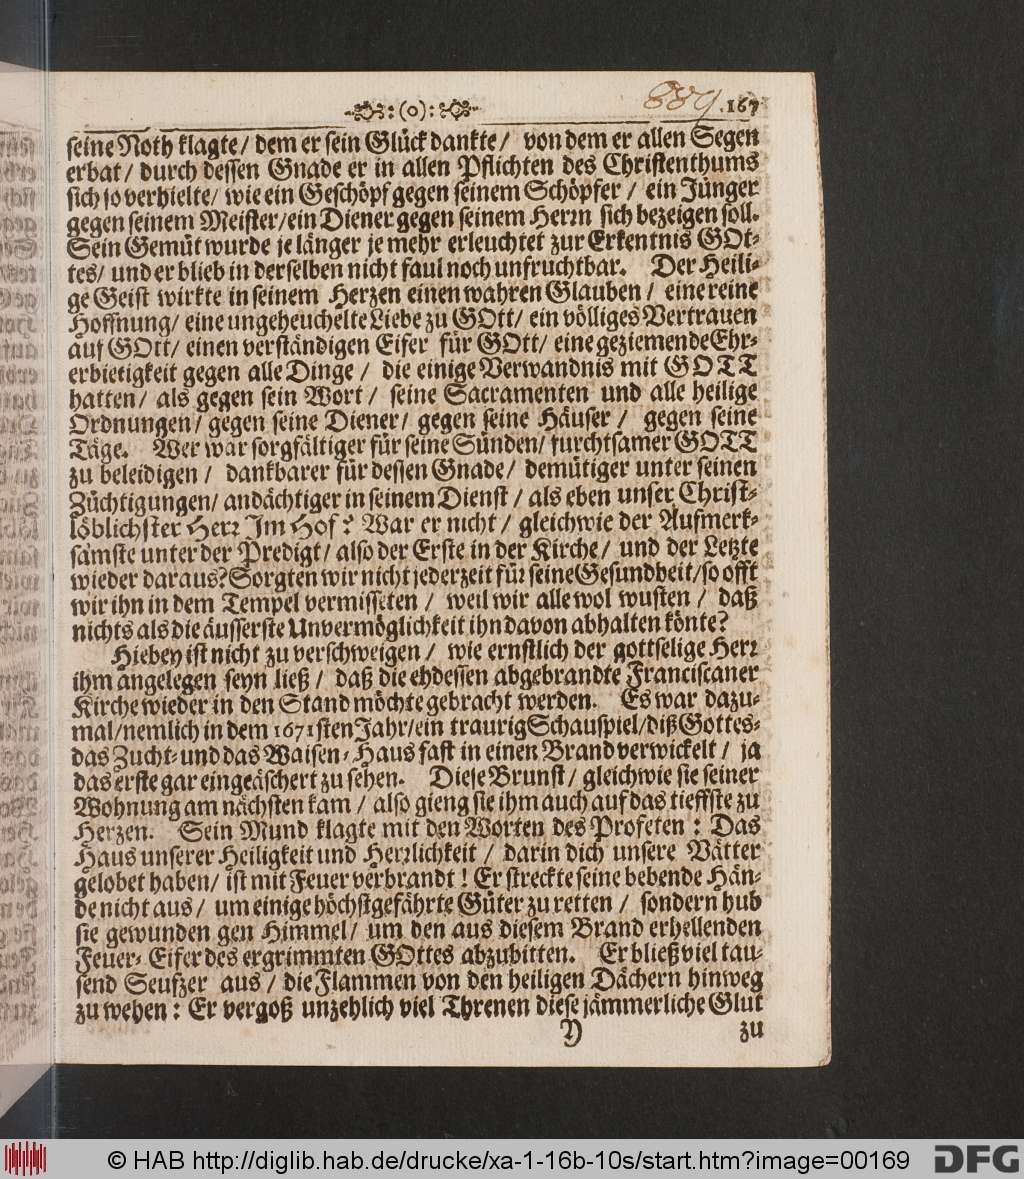 :(o): 167
seine Noth klagte / dem er sein Glück dankte / von dem er allen Segen
erbat / durch dessen Gnade er in allen Pflichten des Christenthums
sich so verhielte / wie ein Geschöpf gegen seinem Schöpfer / ein Jünger
gegen seinem Meister / ein Diener gegen seinem Herrn sich bezeigen soll.
Sein Gemüt wurde je länger je mehr erleuchtet zur Erkentnis GOt-
tes / und er blieb in derselben nicht faul noch unfruchtbar. Der Heili-
ge Geist wirkte in seinem Herzen einen wahren Glauben / eine reine
Hoffnung / eine ungeheuchelte Liebe zu GOtt / ein völliges Vertrauen
auf GOtt / einen verständigen Eifer für GOtt / eine geziemende Ehr-
erbietigkeit gegen alle Dinge / die einige Verwandnis mit GOTT
hatten / als gegen sein Wort / seine Sacramenten und alle heilige
Ordnungen / gegen seine Diener / gegen seine Häuser / gegen seine
Täge. Wer war sorgfältiger für seine Sünden / furchtsamer GOTT
zu beleidigen / dankbarer für dessen Gnade / demütiger unter seinen
Züchtigungen / andächtiger in seinem Dienst / als eben unser Christ-
löblichster Herr Im Hof? War er nicht / gleichwie der Aufmerk-
samste unter der Predigt / also der Erste in der Kirche / und der Letzte
wieder daraus? Sorgten wir nicht jederzeit für seine Gesundheit / so offt
wir ihn in dem Tempel vermisseten / weil wir alle wol wusten / daß
nichts als die äusserste Unvermöglichkeit ihn davon abhalten könte?
Hiebey ist nicht zu verschweigen / wie ernstlich der gottselige Herr
ihm angelegen seyn ließ / daß die ehdessen abgebrandte Franciscaner
Kirche wieder in den Stand möchte gebracht werden. Es war dazu-
mal / nemlich in dem 1671sten Jahr / ein traurig Schauspiel / diß Gottes-
das Zucht- und das Waisen-Haus fast in einen Brand verwickelt / ja
das erste gar eingeäschert zu sehen. Diese Brunst / gleichwie sie seiner
Wohnung am nächsten kam / also gieng sie ihm auch auf das tieffste zu
Herzen. Sein Mund klagte mit den Worten des Profeten: Das
Haus unserer Heiligkeit und Herrlichkeit / darin dich unsere Vätter
gelobet haben / ist mit Feuer verbrandt! Er streckte seine bebende Hän-
de nicht aus / um einige höchstgefährte Güter zu retten / sondern hub
sie gewunden gen Himmel / um den aus diesem Brand erhellenden
Feuer-Eifer des ergrimmten GOttes abzubitten. Er bließ viel tau-
send Seufzer aus / die Flammen von den heiligen Dächern hinweg
zu wehen: Er vergoß unzehlich viel Threnen diese jämmerliche Glut
Y zu
© HAB http://diglib.hab.de/drucke/xa-1-16b-10s/start.htm?image=00169 DFG